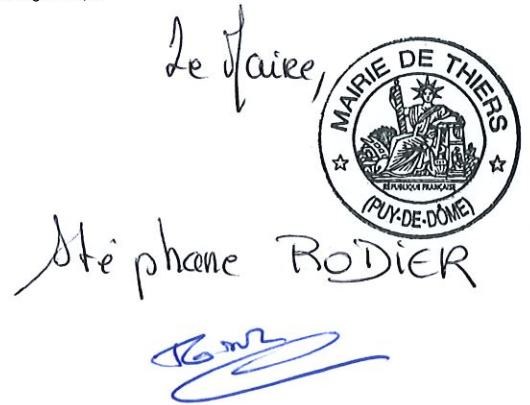 Le Maire,
MAIRIE DE THIERS
RÉPUBLIQUE FRANÇAISE
(PUY-DE-DÔME)
Stéphane RODIER